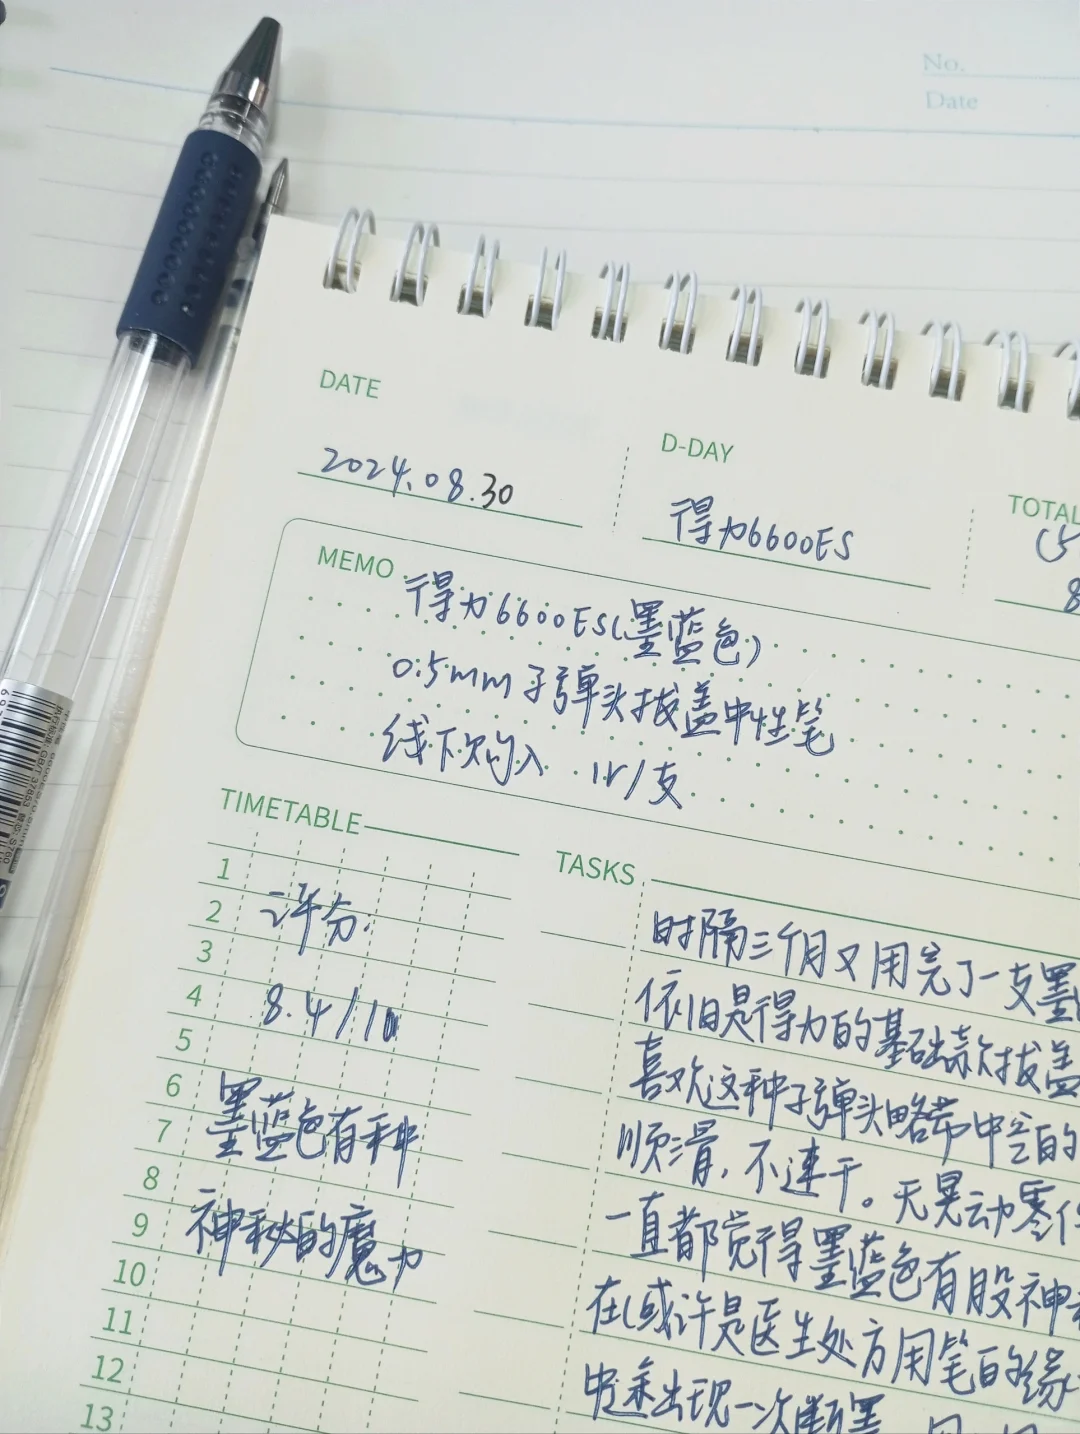 No.
Date
DATE
2024.08.30
D-DAY
得力6600ES
TOTAL
MEMO
得力6600ES(墨蓝色)
0.5mm 子弹头拔盖中性笔
线下购入 1r/支
TIMETABLE
1
2
3
4
5
6
7
8
9
10
11
12
13
评分:
8.4/10
墨蓝色有种
神秘的魔力
TASKS
时隔三个月又用完了一支墨
依旧是得力的基础款拔盖
喜欢这种子弹头略带中空的
顺滑,不速干。无晃动零件
一直都觉得墨蓝色有股神
在(或许是医生处方用笔的缘
中途出现一次断墨
执行标准: GB/T 37853